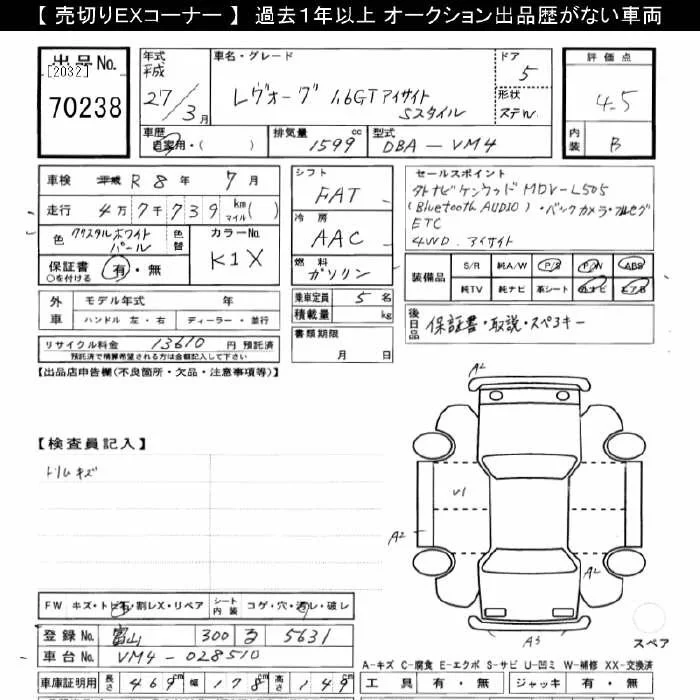 【 売切りEXコーナー 】 過去1年以上 オークション出品歴がない車両
出品No.
[2032]
70238
年式
平成
27/3月
車名・グレード
レヴォーグ 1.6GTアイサイト
Sスタイル
ドア
5
形状
ステW
評価点
4.5
内装
B
車歴
自家用・( )
排気量
1599 cc
型式
DBA-VM4
車検 平成 R8年 7月
走行 4万7千739 km マイル( )
色
クリスタルホワイト
パール
色替
カラーNo.
K1X
保証書
○を付ける
有・無
シフト
FAT
冷房
AAC
燃料
ガソリン
セールスポイント
外ナビケンウッドMDV-L505
(Bluetooth AUDIO)・バックカメラ・フルセグ
ETC
4WD.アイサイト
装備品
S/R 純A/W P/S P/W ABS
純TV 純ナビ 革シート カナビ エアB
外車
モデル年式 年
ハンドル 左・右 ディーラー・並行
乗車定員 5名
積載量 kg
書類期限
月 日
後日品
保証書・取説・スペアキー
リサイクル料金 13610 円 預託済
預託済で精算希望される方は金額記入して下さい
【出品店申告欄(不良箇所・欠品・注意事項等)】
【検査員記入】
トリムキズ
A2
U1
A2
A2
A3
スペア
FW キズ・トビ石・割レX・リペア
シート内装 コゲ・穴・汚レ・破レ
登録No. 富山 300 る 5631
車台No. VM4-028510
車庫証明用 長さ 469cm 幅 178cm 高さ 149cm
A-キズ C-腐食 E-エクボ S-サビ U-凹ミ W-補修 XX-交換済
工具 有・無 ジャッキ 有・無